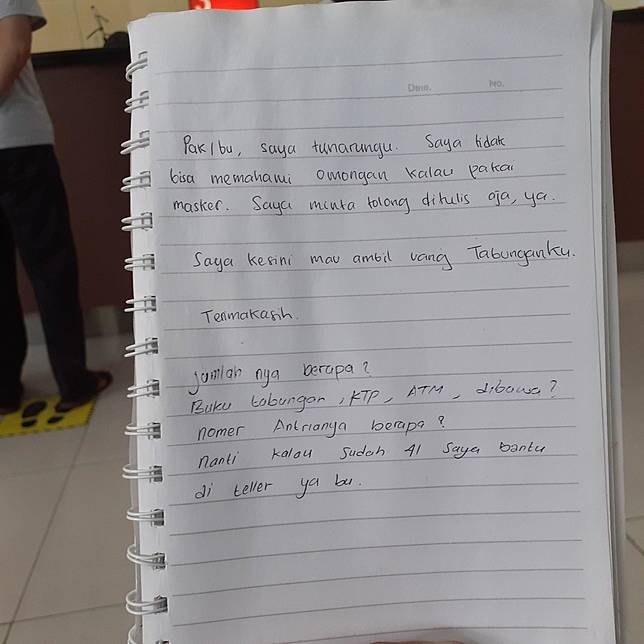 Date.
No.
Pak/bu, saya tunarungu. Saya tidak
bisa memahami omongan kalau pakai
masker. Saya minta tolong ditulis aja, ya.
Saya kesini mau ambil uang Tabunganku.
Terimakasih.
jumlah nya berapa?
Buku tabungan, KTP, ATM, dibawa?
nomer Antrianya berapa?
nanti kalau sudah 41 saya bantu
di teller ya bu.